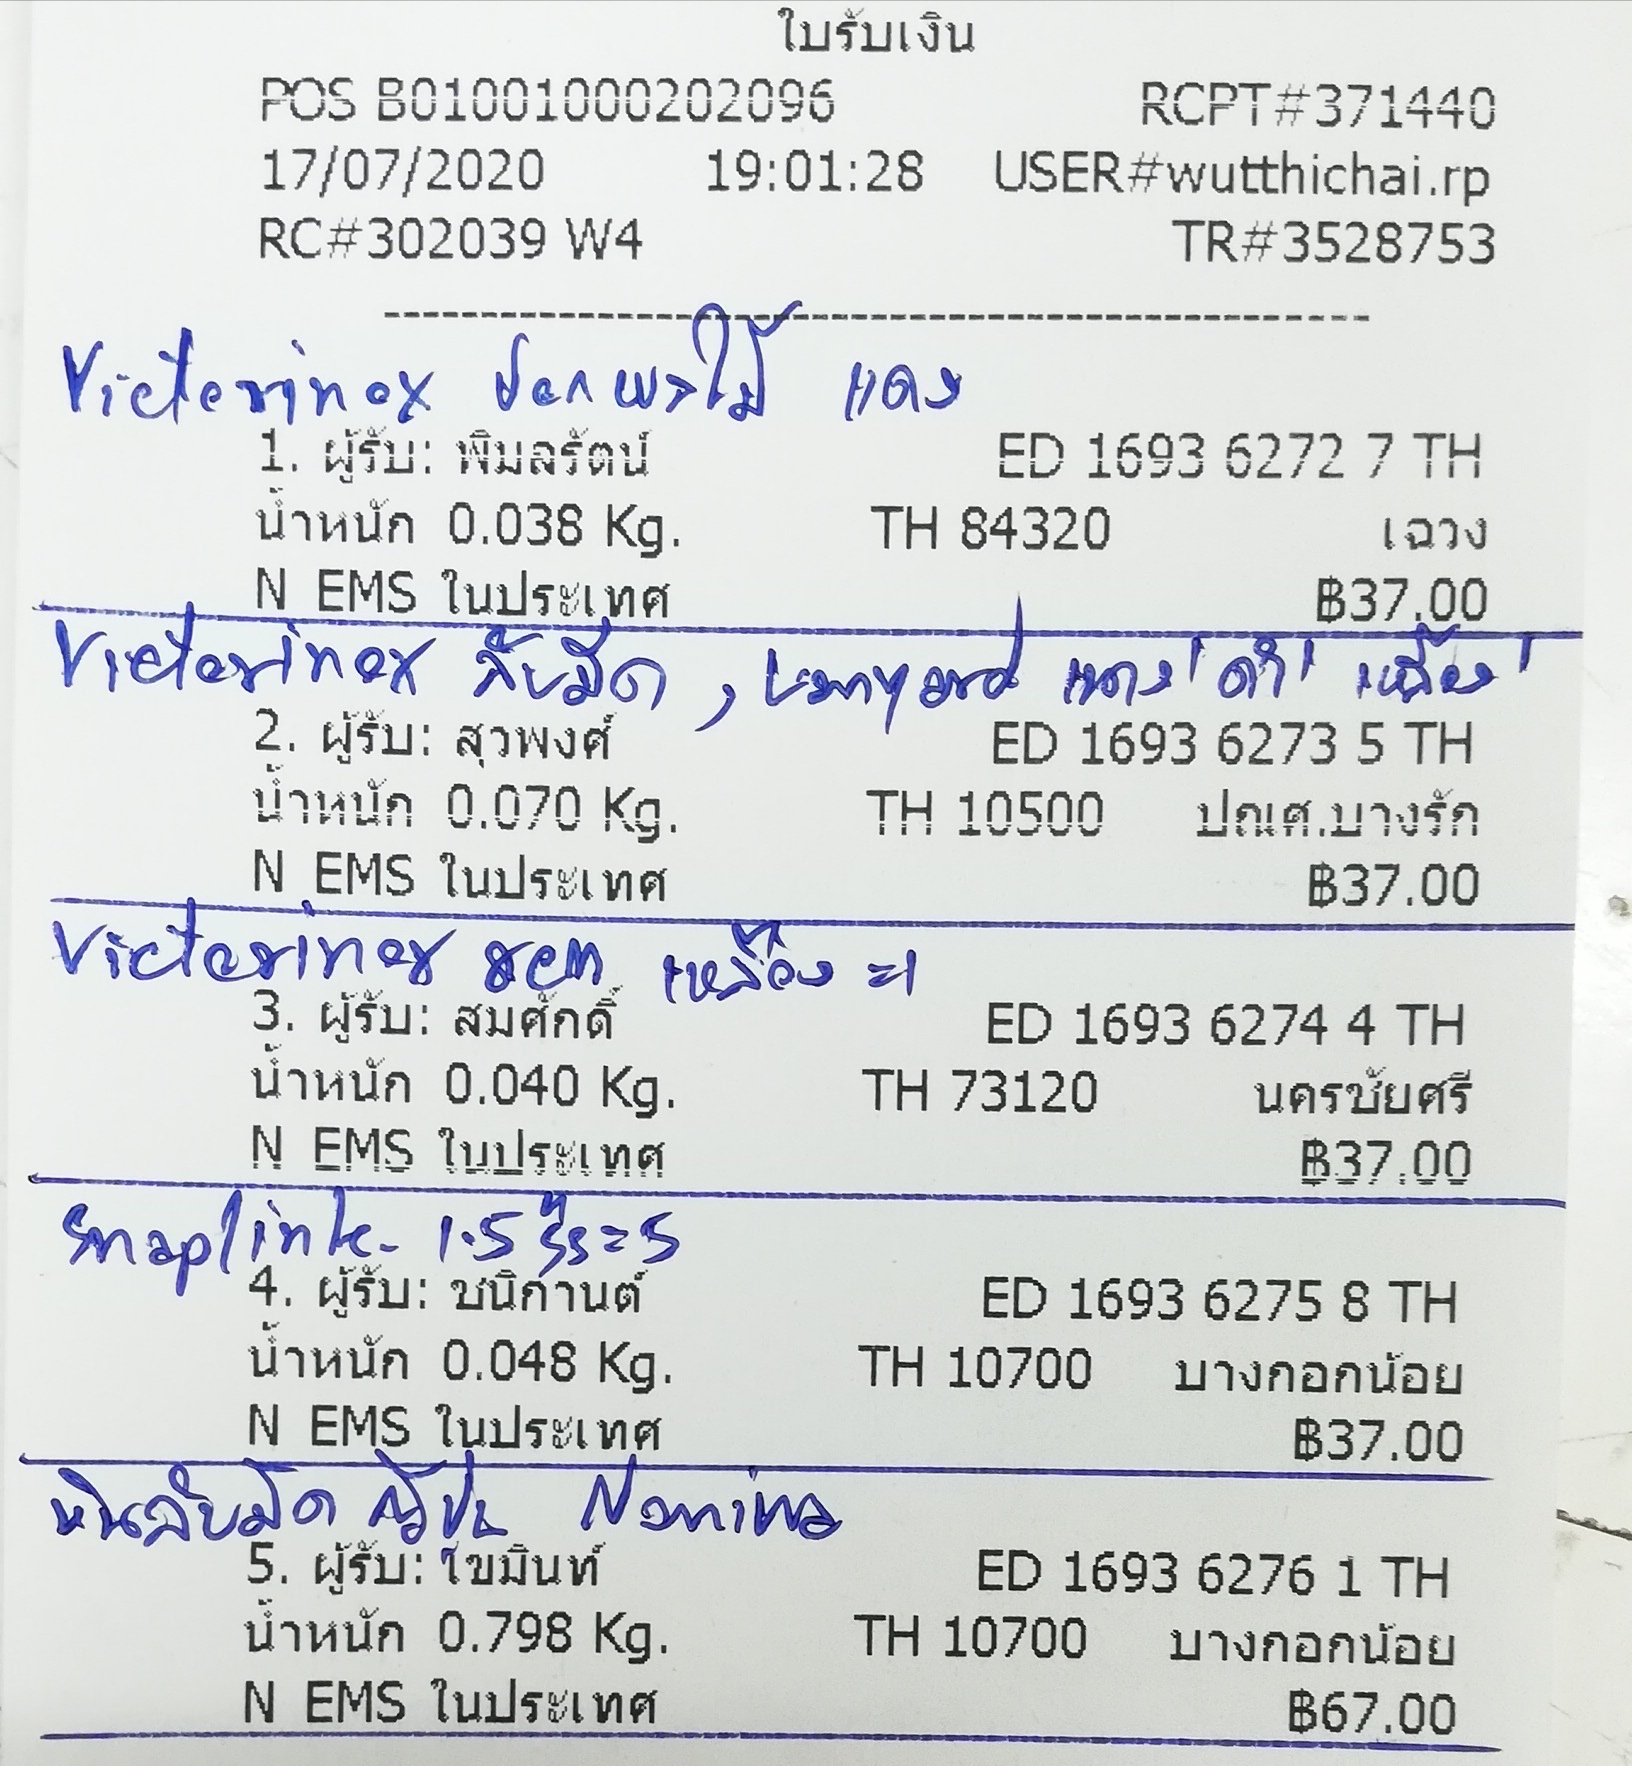 ใบรับเงิน
POS B01001000202096 RCPT#371440
17/07/2020 19:01:28 USER#wutthichai.rp
RC#302039 W4 TR#3528753
--------------------------------------------------
Victorinox ปอกผลไม้ แดง
1. ผู้รับ: พิมลรัตน์ ED 1693 6272 7 TH
น้ำหนัก 0.038 Kg. TH 84320 เฉวง
N EMS ในประเทศ ฿37.00
Victorinox ลับมีด, Lanyard แดง1 ดำ1 เหลือง1
2. ผู้รับ: สุวพงศ์ ED 1693 6273 5 TH
น้ำหนัก 0.070 Kg. TH 10500 ปณศ.บางรัก
N EMS ในประเทศ ฿37.00
Victorinox เหลือง =1
3. ผู้รับ: สมศักดิ์ ED 1693 6274 4 TH
น้ำหนัก 0.040 Kg. TH 73120 นครชัยศรี
N EMS ในประเทศ ฿37.00
Snaplink 1.5 นิ้ว=5
4. ผู้รับ: ชนิกานต์ ED 1693 6275 8 TH
น้ำหนัก 0.048 Kg. TH 10700 บางกอกน้อย
N EMS ในประเทศ ฿37.00
หินลับมีด ญี่ปุ่น Naniwa
5. ผู้รับ: ไขมินท์ ED 1693 6276 1 TH
น้ำหนัก 0.798 Kg. TH 10700 บางกอกน้อย
N EMS ในประเทศ ฿67.00